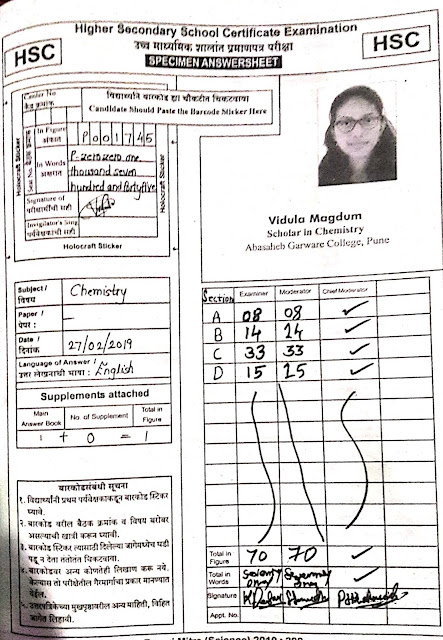 Higher Secondary School Certificate Examination
उच्च माध्यमिक शालांत प्रमाणपत्र परीक्षा
HSC
SPECIMEN ANSWERSHEET
HSC
Center No
विद्यार्थ्याने बारकोड ह्या चौकटीत चिकटवावा
Candidate Should Paste the Barcode Sticker Here
Holocraft Sticker
In Figure
अंकात
P001745
In Words
अक्षरात
P-zero zero one
thousand seven
hundred and fortyfive
Signature of
परीक्षार्थीची सही
Invigilator's Sing
पर्यवेक्षकाची सही
Holocraft Sticker
Holocraft Sticker
Vidula Magdum
Scholar in Chemistry
Abasaheb Garware College, Pune
Subject / विषय Chemistry
Paper / पेपर : –
Date / दिनांक 27/02/2019
Language of Answer /
उत्तर लेखनाची भाषा : English
Supplements attached
Main Answer Book No. of Supplement Total in Figure
1 + 0 = 1
Section Examiner Moderator Chief Moderator
A 08 08 ✓
B 14 14 ✓
C 33 33 ✓
D 15 15 ✓
Total in Figure 70 70 ✓
Total in Words ✓
Signature
Appt. No.
बारकोडसंबंधी सूचना
१. विद्यार्थ्यांनी प्रथम पर्यवेक्षकाकडून बारकोड स्टिकर
घ्यावे.
२. बारकोड वरील बैठक क्रमांक व विषय बरोबर
असल्याची खात्री करून घ्यावी.
३. बारकोड स्टिकर त्यासाठी दिलेल्या जागेमध्येच घडी
पडू न देता तंतोतंत चिकटवावा.
४. बारकोडवर अन्य कोणतेही लिखाण करू नये.
केल्यास तो परीक्षेतील गैरमार्गाचा प्रकार मानण्यात
येईल.
५. उत्तरपत्रिकेच्या मुखपृष्ठावरील अन्य माहिती, विहित
जागेत लिहावी.